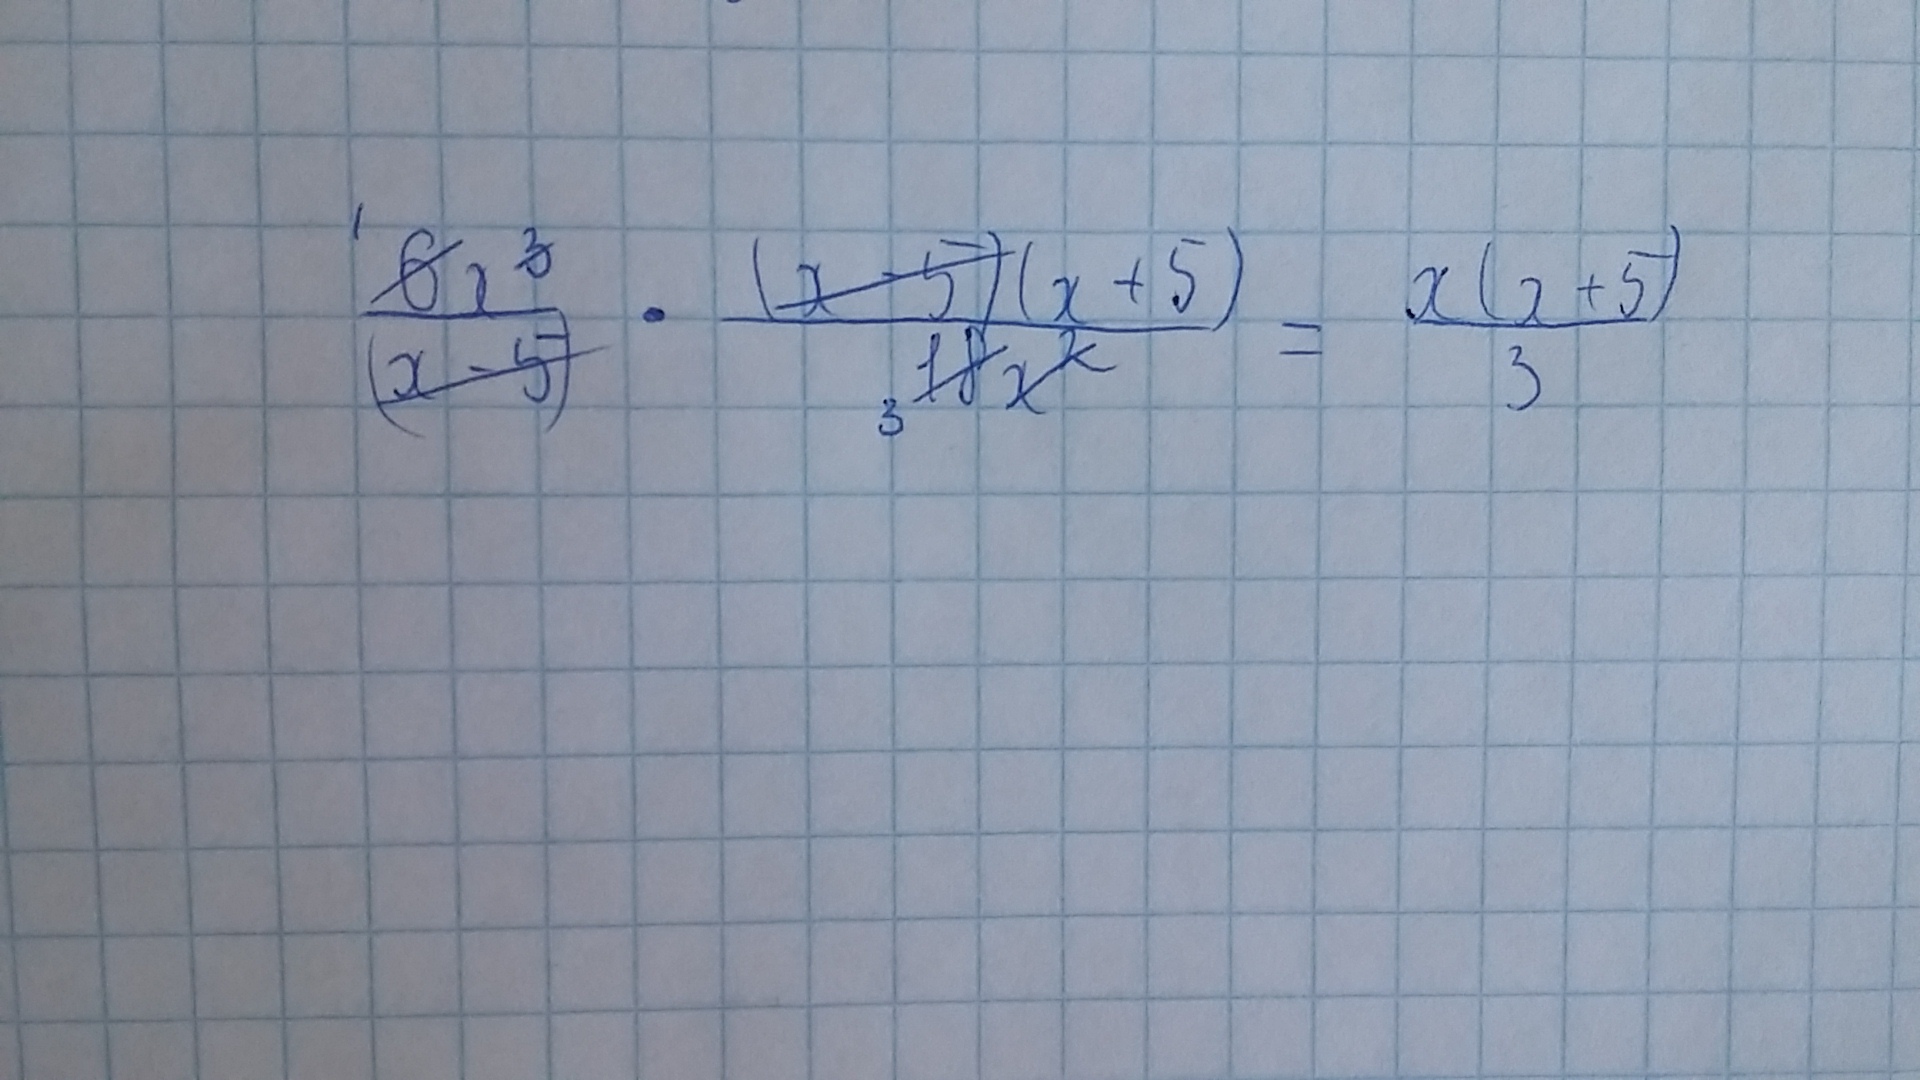 1 6x³/(x-5) · (x-5)(x+5)/3 18x² = x(x+5)/3